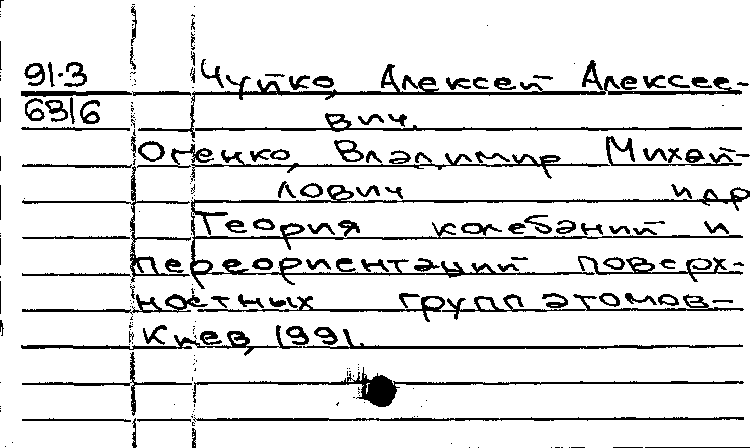 91.3
6316
Чуйко, Алексей Алексее-
вич.
Огенко, Владимир Михай-
лович и др
Теория колебаний и
переориентаций поверх-
ностных групп атомов-
Киев, 1991.